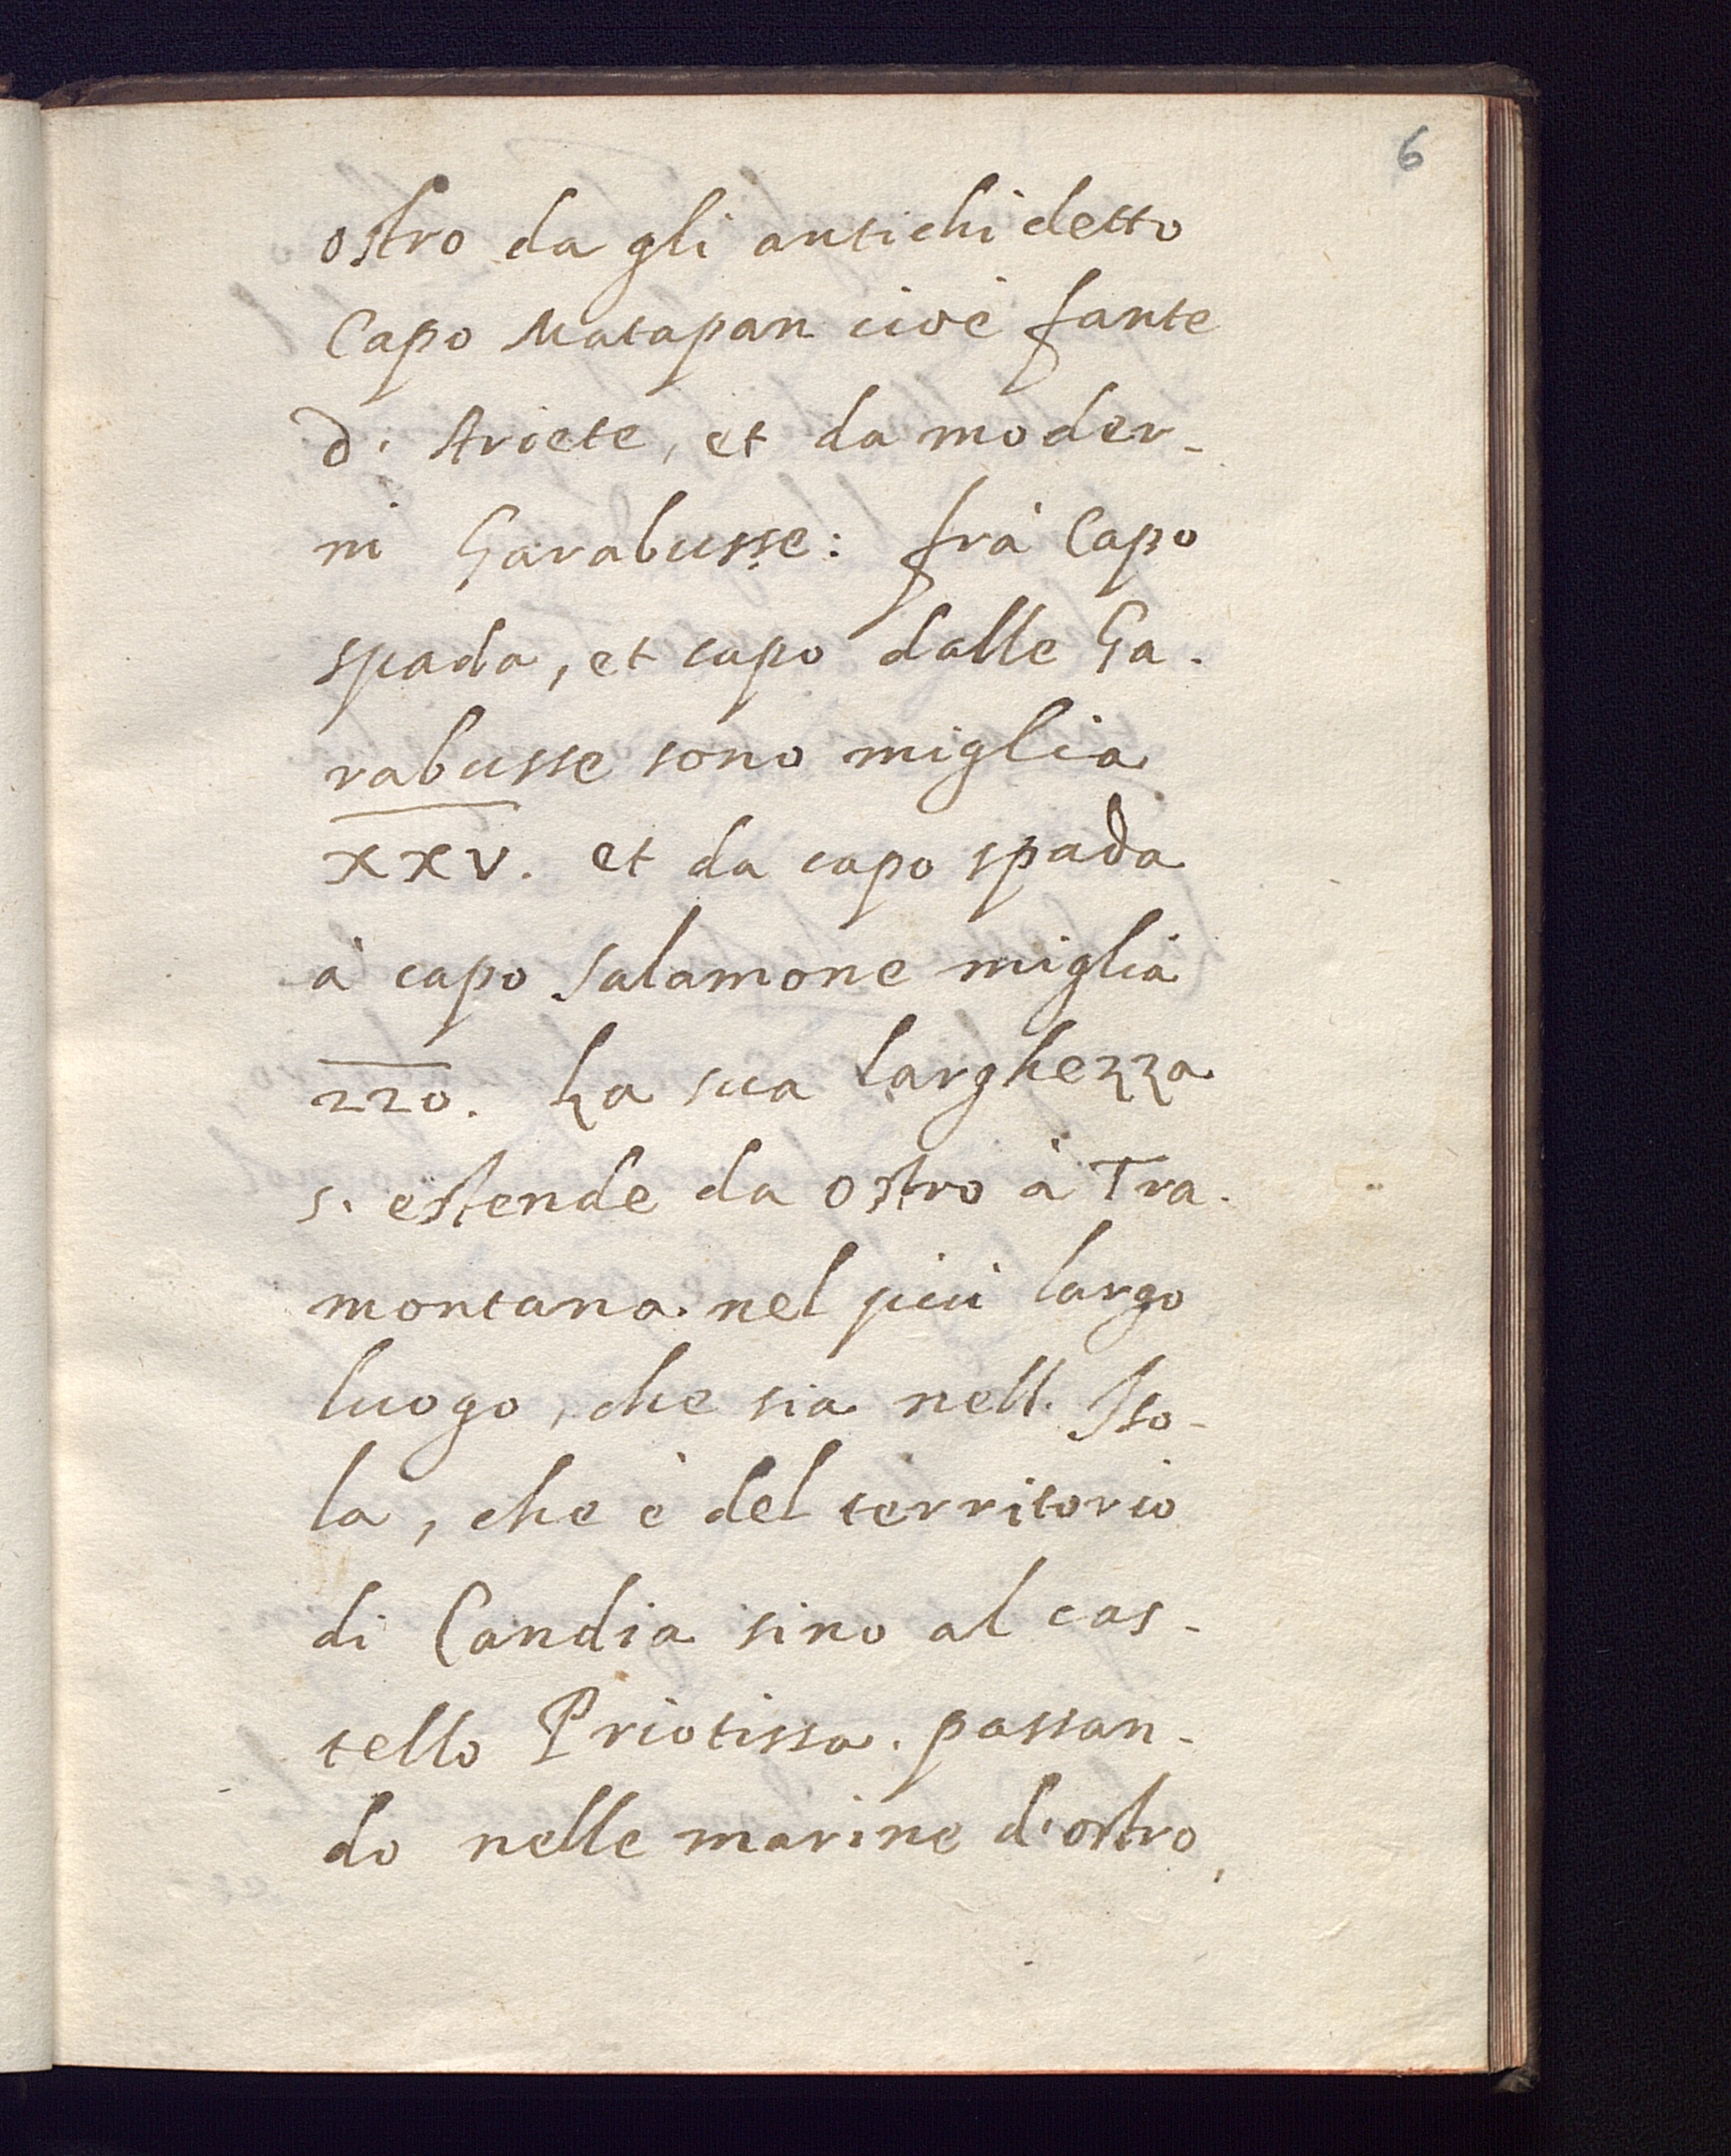 6
ostro da gli antichi detto
Capo Matapan cioè fante
d' Ariete, et da moder-
ni Garabusse: frà Capo
spada, et capo dalle Ga-
rabusse sono miglia
XXV. et da capo spada
à capo Salamone miglia
220. La sua larghezza
s' estende da Ostro à Tra-
montana nel più largo
luogo, che sia nell' Iso-
la, che è del territorio
di Candia sino al cas-
tello Priotissa. passan-
do nelle marine d'ostro,